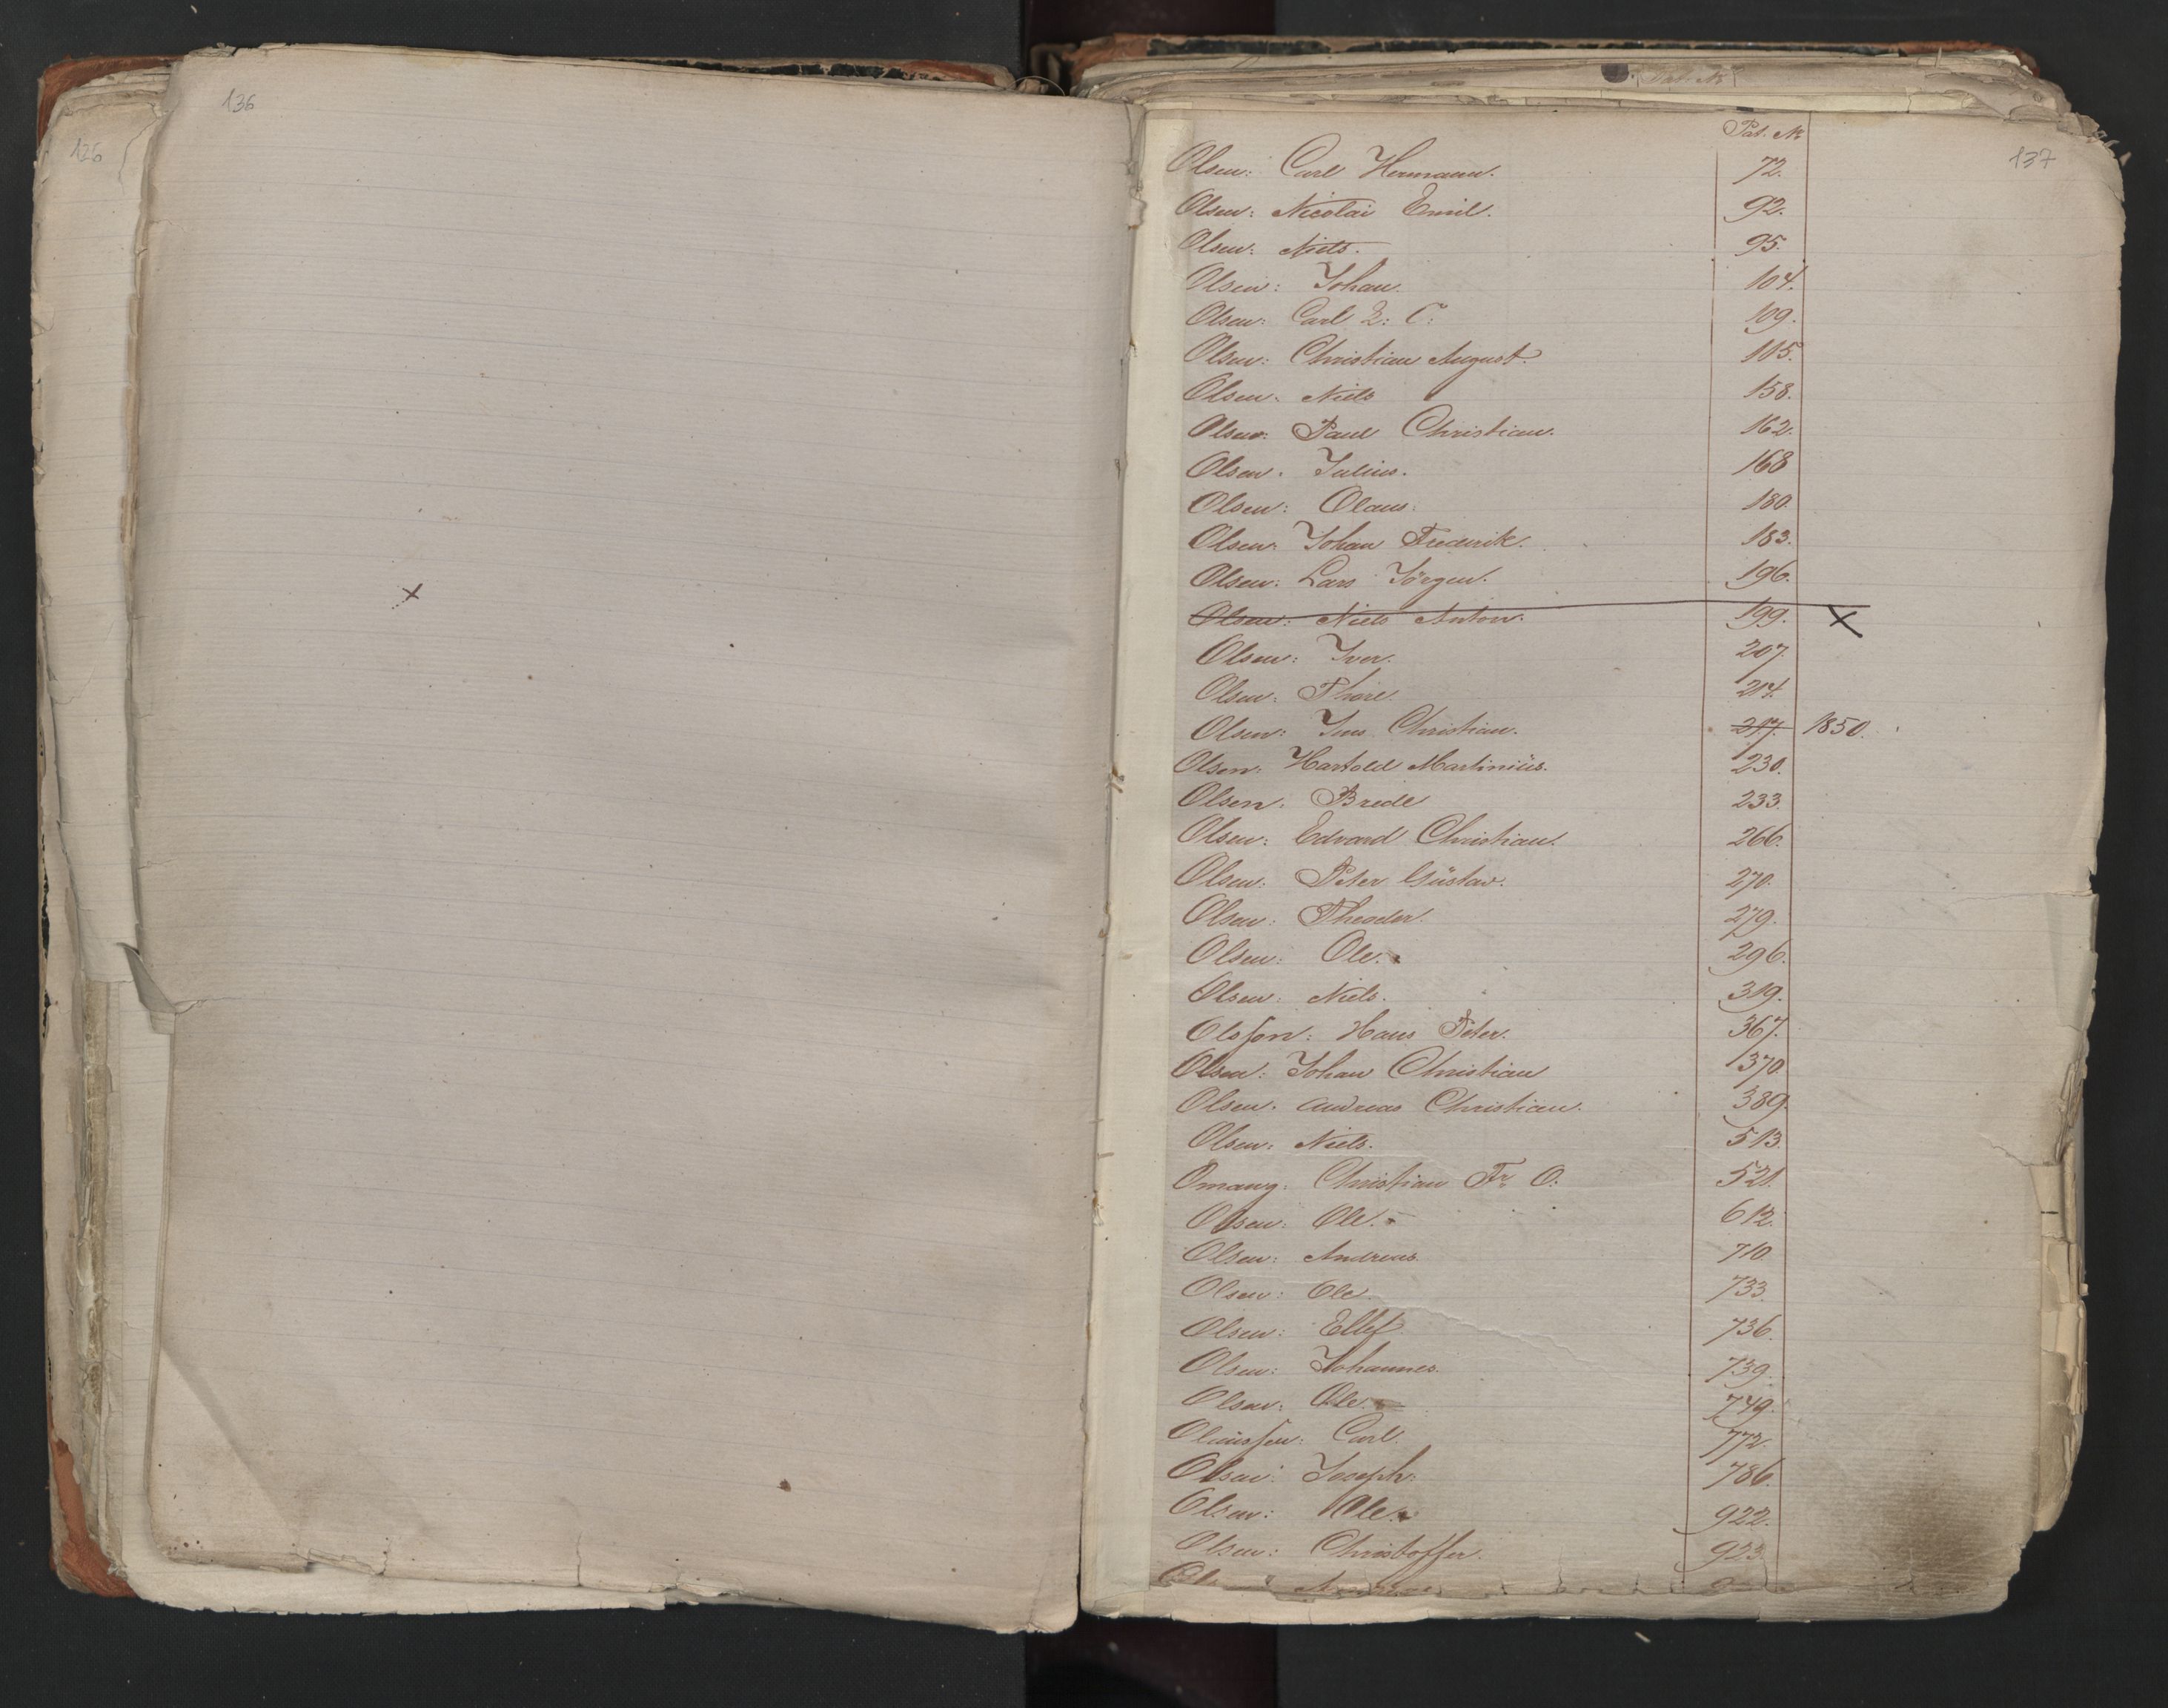 136
126
137
Pat. Nr
Olsen: Carl Hermann. 72.
Olsen: Nicolai Emil. 92.
Olsen: Niels. 95.
Olsen: Johan. 104.
Olsen: Carl C: 109.
Olsen: Christian August. 115.
Olsen. Niels 158.
Olsen: Paul Christian. 162.
Olsen. Julius. 168
Olsen: Olaus. 180.
Olsen: Johan Frederik. 183.
Olsen: Lars Jörgen. 196.
Olsen: Niels Anton. 199. X
Olsen: Iver. 207.
Olsen: Thore. 214.
Olsen: Jens Christian. 217. 1850.
Olsen: Hartold Martinius. 230.
Olsen. Brede 233.
Olsen: Edvard Christian. 266.
Olsen: Peter Güstav. 270.
Olsen: Theodor. 279.
Olsen: Ole. 296.
Olsen: Niels. 319.
Olsson: Hans Peter. 367.
Olsen: Johan Christian 370.
Olsen. Andreas Christian. 389.
Olsen: Niels. 513.
Omang: Christian Fr. O: 521.
Olsen: Ole. 612.
Olsen: Andreas. 710.
Olsen: Ole. 733.
Olsen: Ellef 736.
Olsen: Johannes. 739.
Olsen: Ole. 749.
Olaüssen: Carl. 772.
Olsen: Joseph: 786.
Olsen: Ole. 922.
Olsen: Christoffer. 923.